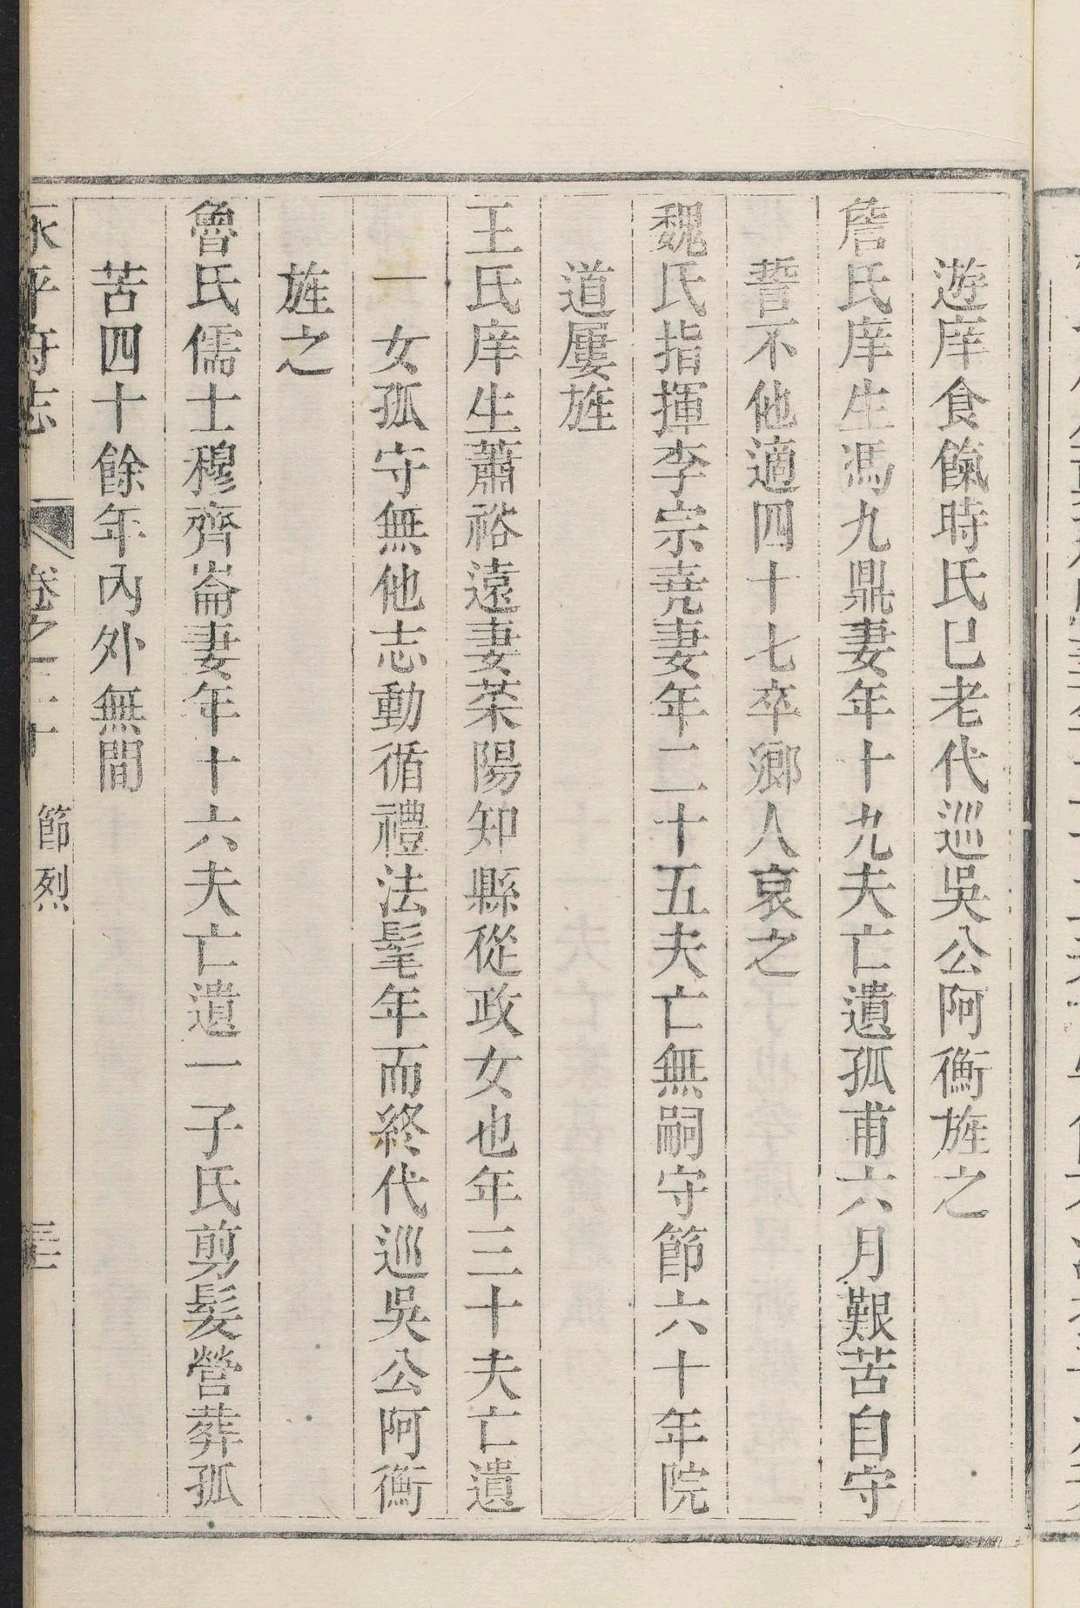 遊庠食餼時氏已老代巡吳公阿衡旌之
詹氏庠生馮九鼎妻年十九夫亡遺孤甫六月艱苦自守
誓不他適四十七卒鄉人哀之
魏氏指揮李宗堯妻年二十五夫亡無嗣守節六十年院
道屢旌
王氏庠生蕭裕遠妻荣陽知縣從政女也年三十夫亡遺
一女孤守無他志動循禮法髦年而終代巡吳公阿衡
旌之
魯氏儒士穆齊崙妻年十六夫亡遺一子氏剪髮營葬孤
苦四十餘年內外無間
永平府志 卷之二十 節烈 三二